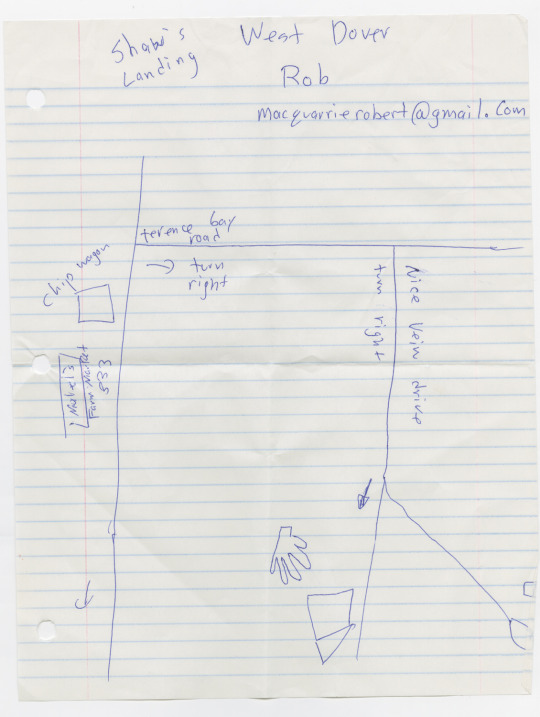 Shaw's
Landing
West Dover
Rob
macquarrierobert@gmail.com
terence bay
road
turn
right
Chip wagon
Farm Market
333
Nice Vein drive
turn right